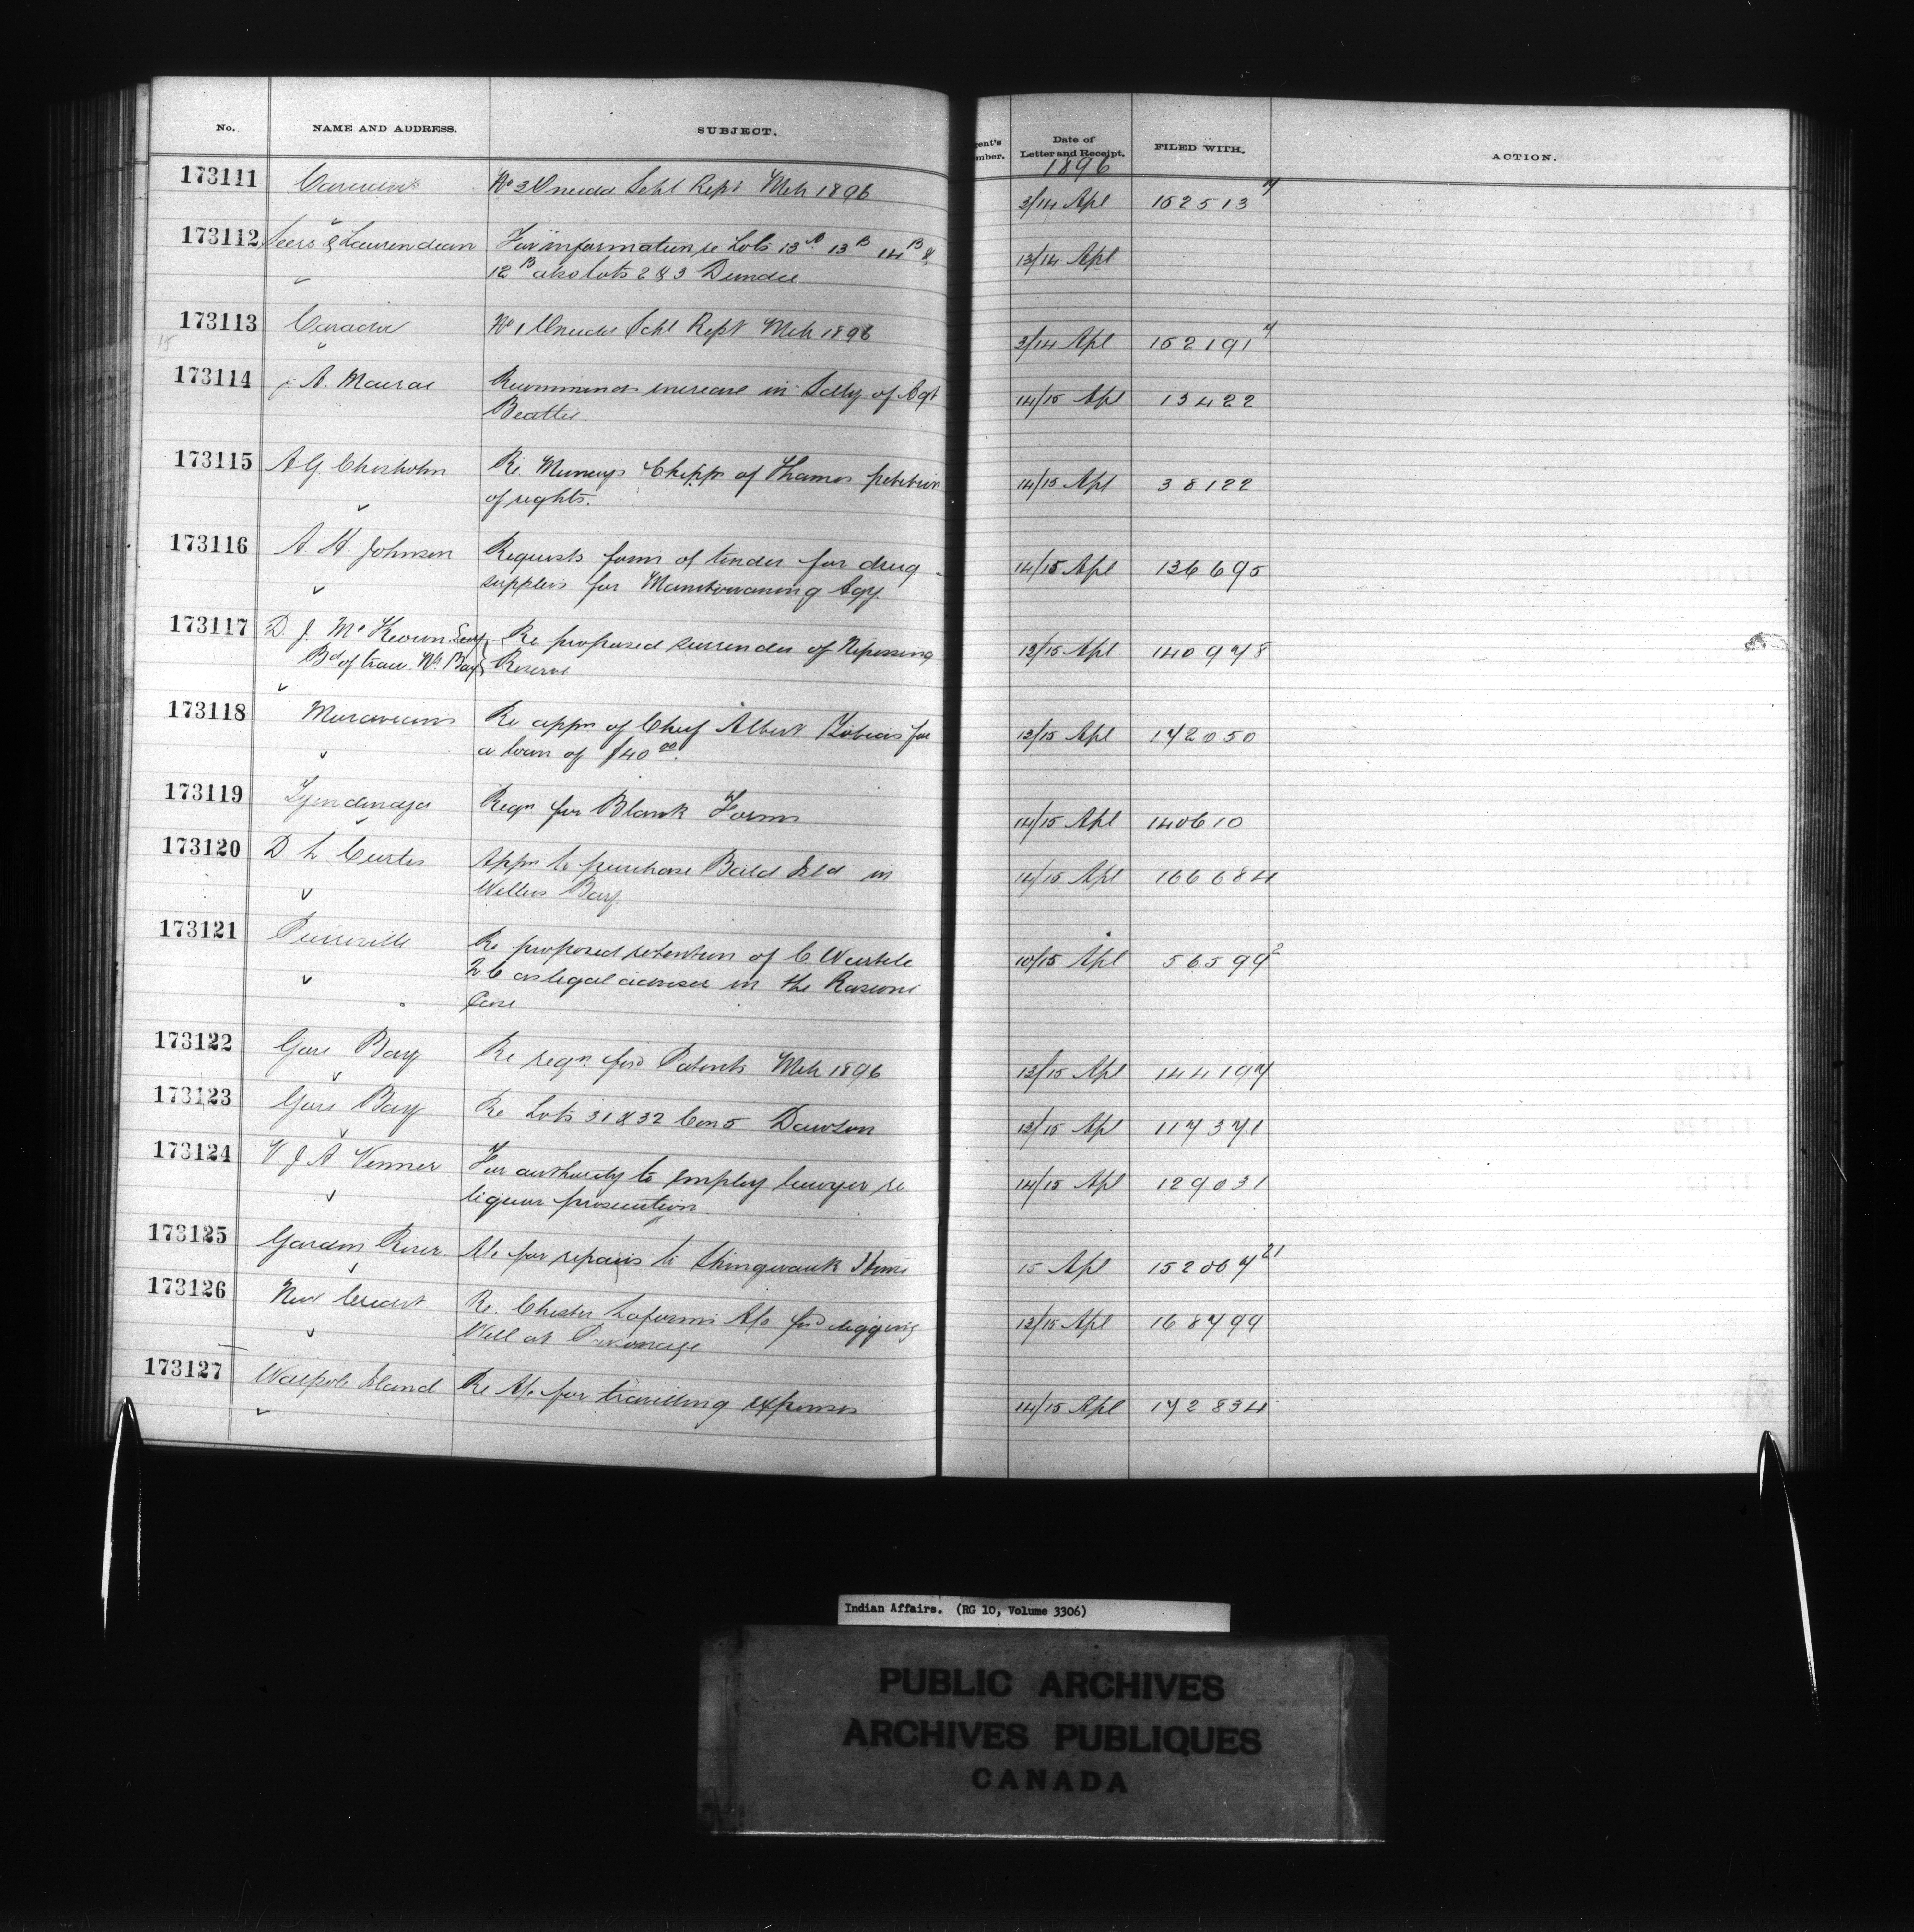 No. NAME AND ADDRESS. SUBJECT. gent's mber. Date of Letter and Receipt. FILED WITH. ACTION.
1896
173111 Caradoc No 3 Oneida Schl Rept Mch 1896 3/14 Apl 152513 7
173112 Seers & Laurendeau For information re Lots 13A 13B 14B & 13/14 Apl
12B also lots 2 & 3 Dundee
173113 Caradoc No 1 Oneida Schl Rept Mch 1896 3/14 Apl 152191 7
15
173114 A. Macrae Recommends increase in Salry of Agt 14/15 Apl 13422
Beattie
173115 A G. Chisholm Re Munceys Chipps of Thames petition 14/15 Apl 38122
of rights.
173116 A. H. Johnson Requests form of tender for drug 14/15 Apl 136695
supplies for Manitowaning Agy.
173117 D. J. Mc Keown Secy Re proposed surrender of Nipissing 13/15 Apl 140978
Bd of trade No. Bay Reserve
173118 Moravians Re appn of Chief Albert Tobias for 13/15 Apl 172050
a loan of $40 00.
173119 Tyendinaga Reqn for Blank Forms 14/15 Apl 140610
173120 D. L. Curtis Appn to purchase Bald Isld in 14/15 Apl 166684
Wellers Bay.
173121 Pierreville Re proposed retention of C. Wurtele 10/15 Apl 56599 2
Q C as legal adviser in the
Case
173122 Gore Bay Re reqn for Patents Mch 1896 13/15 Apl 144197
173123 Gore Bay Re Lots 31 & 32 Con 5 Dawson 13/15 Apl 117371
173124 V J A Venner For authority to employ lawyer re 14/15 Apl 129031
liquor prosecution
173125 Garden River A/c for repairs to Shingwauk Home 15 Apl 152067 21
173126 New Credit Re. Chester Laforme A/c for digging 13/15 Apl 168799
Well at Parsonage
173127 Walpole Island Re A/c for travelling expenses 14/15 Apl 172834
Indian Affairs. (RG 10, Volume 3306)
PUBLIC ARCHIVES
ARCHIVES PUBLIQUES
CANADA